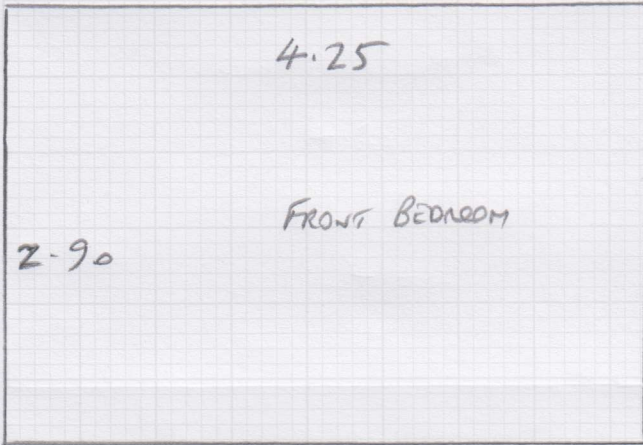 4.25
FRONT BEDROOM
2.90